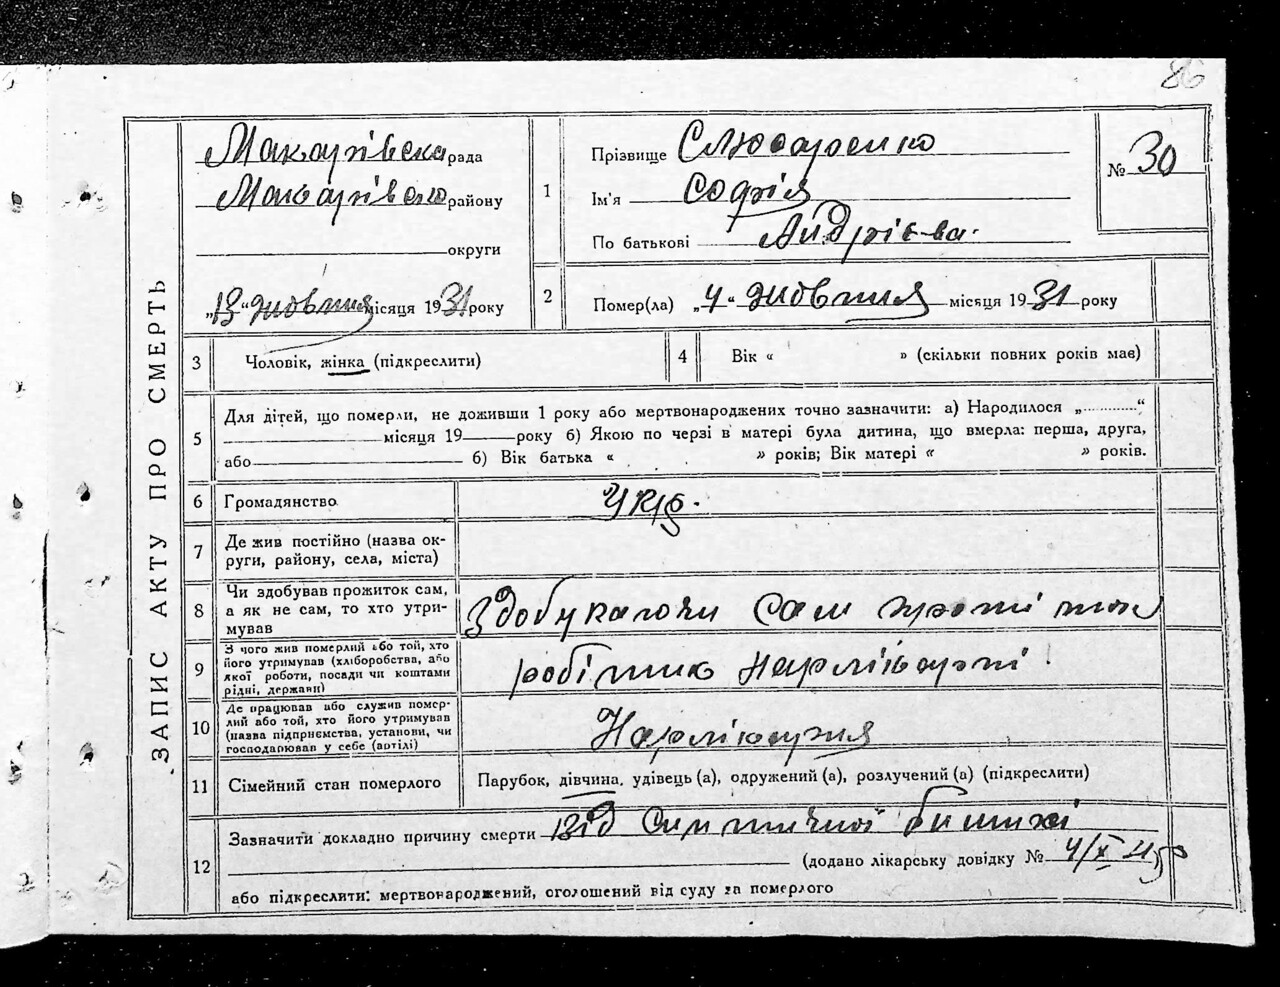 86
ЗАПИС АКТУ ПРО СМЕРТЬ
Макарівська рада
Макарівського району
округи
„13“ жовтня місяця 1931 року
1
Прізвище Слюсаренко
Ім'я Софія
По батькові Андрієва.
№ 30
2
Помер(ла) „4“ жовтня місяця 1931 року
3
Чоловік, жінка (підкреслити)
4
Вік « » (скільки повних років має)
5
Для дітей, що померли, не доживши 1 року або мертвонароджених точно зазначити: а) Народилося „...........“
місяця 19 року б) Якою по черзі в матері була дитина, що вмерла: перша, друга,
або б) Вік батька « » років; Вік матері « » років.
6
Громадянство
Укр.
7
Де жив постійно (назва ок-
руги, району, села, міста)
8
Чи здобував прожиток сам,
а як не сам, то хто утри-
мував
сам
9
З чого жив померлий або той, хто
його утримував (хліборобства, або
якої роботи, посади чи коштами
рідні, держави)
робітник
10
Де працював або служив помер-
лий або той, хто його утримував
(назва підприємства, установи, чи
господарював у себе (артілі)
11
Сімейний стан померлого
Парубок, дівчина, удівець (а), одружений (а), розлучений (а) (підкреслити)
12
Зазначити докладно причину смерти від
(додано лікарську довідку № 4/X
або підкреслити: мертвонароджений, оголошений від суду за померлого